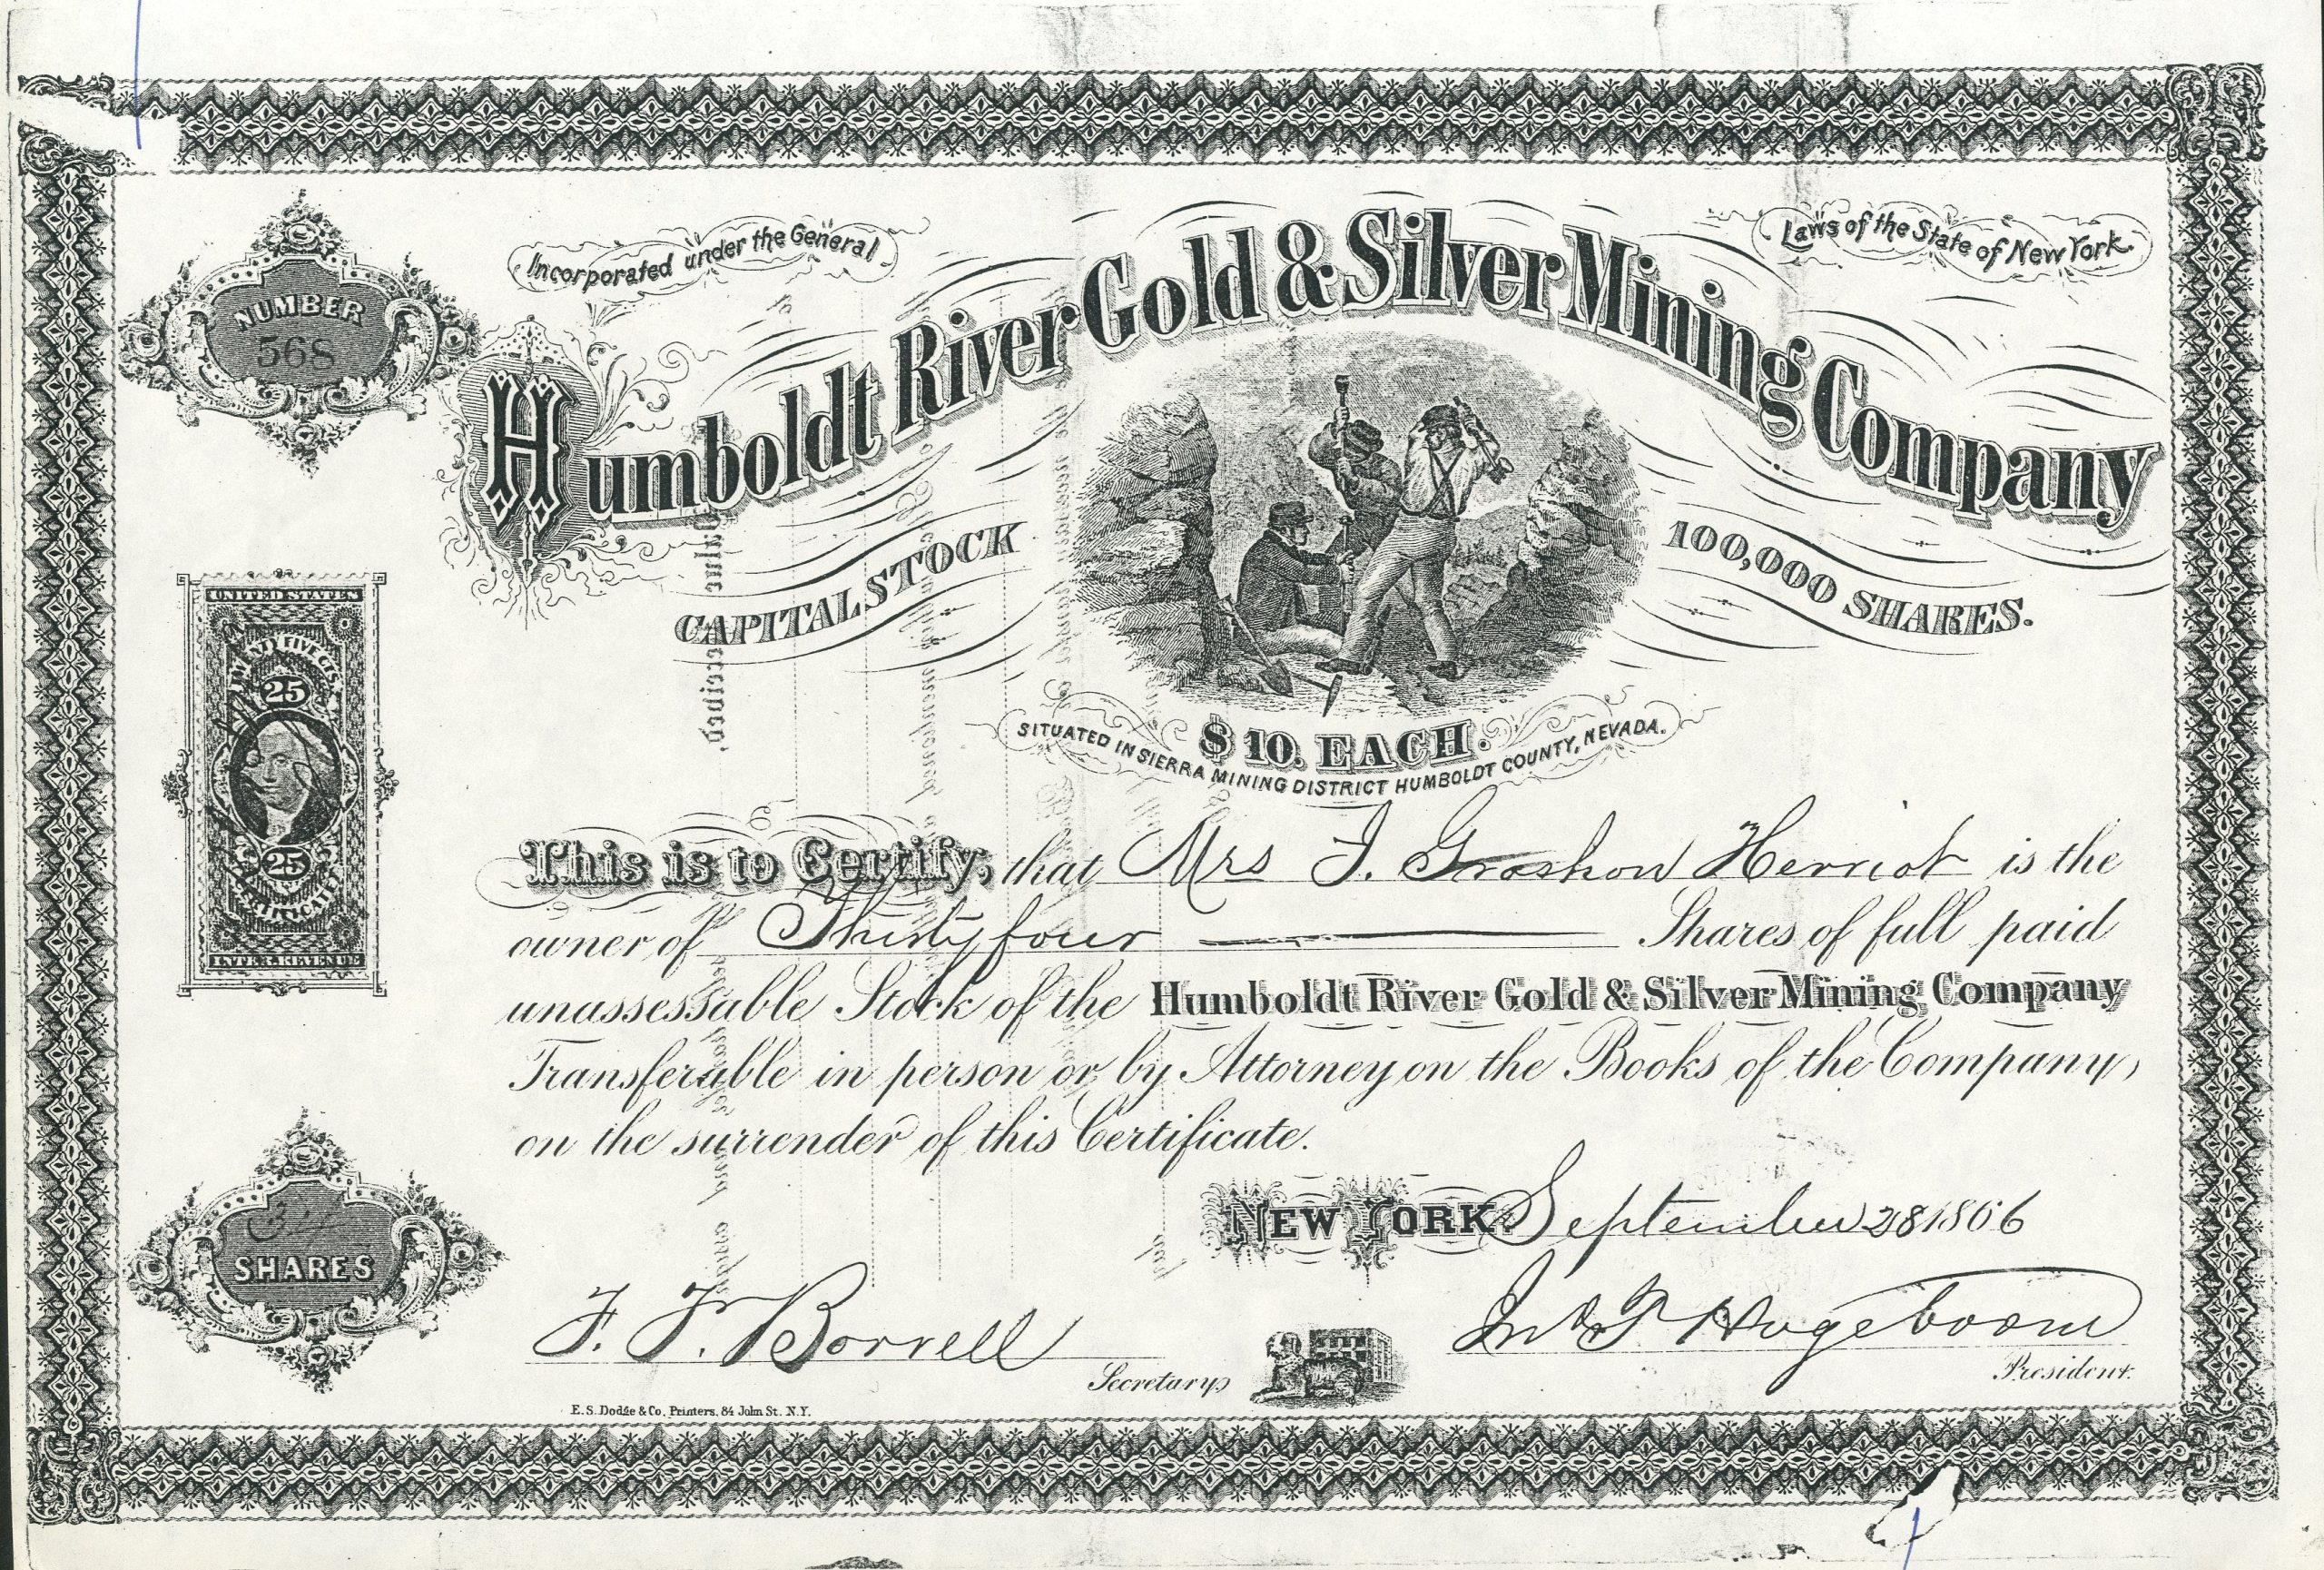 Incorporated under the General
Laws of the State of New York.
NUMBER
568
Humboldt River Gold & Silver Mining Company
CAPITAL STOCK
100,000 SHARES.
$10. EACH.
SITUATED IN SIERRA MINING DISTRICT HUMBOLDT COUNTY, NEVADA.
UNITED STATES
TWENTY FIVE CTS.
25
25
CERTIFICATE
INTER. REVENUE
This is to Certify, that Mrs J. Groshow Herriot is the
owner of Thirty four Shares of full paid
unassessable Stock of the Humboldt River Gold & Silver Mining Company
Transferable in person or by Attorney on the Books of the Company,
on the surrender of this Certificate.
NEW YORK September 28 1866
34
SHARES
F. F. Borrell
Secretary
Hogeboom
President.
E. S. Dodge & Co. Printers, 84 John St. N.Y.